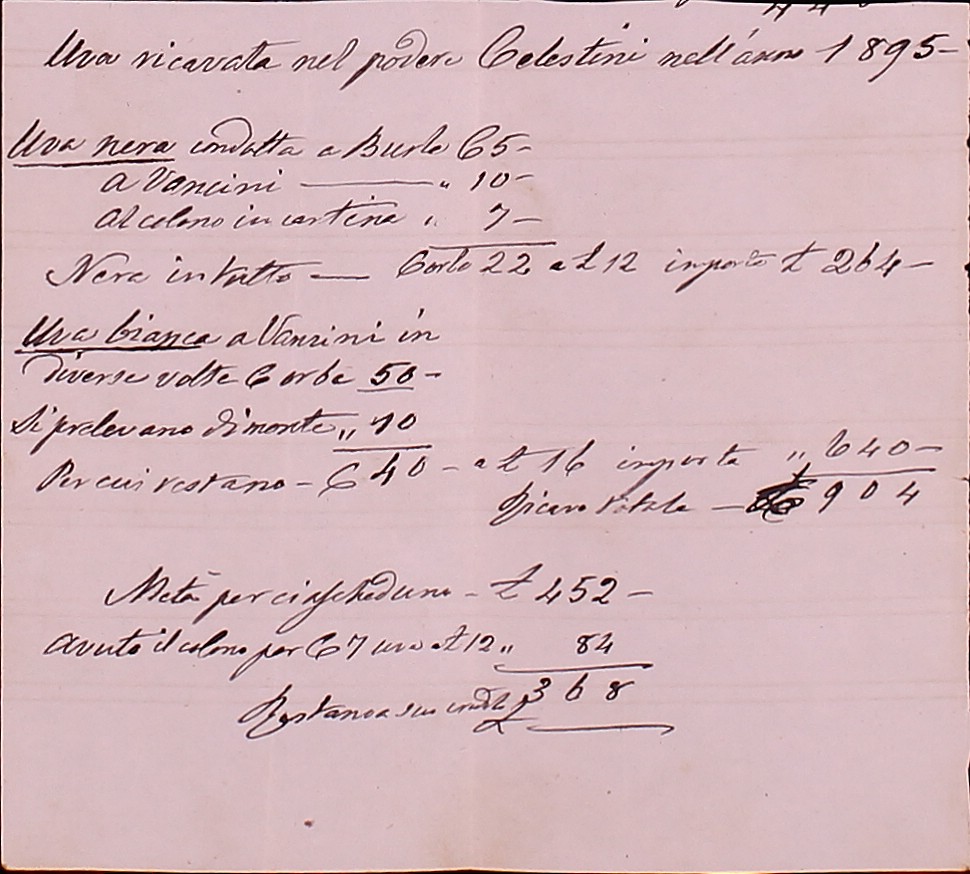 Uva ricavata nel podere Celestini nell'anno 1895-
Uva nera condotta a Burle C 5-
a Vancini — " 10-
al colono in cantina " 7-
Nera in tutto — Corbe 22 a £ 12 importo £ 264-
Uva bianca a Vancini in
diverse volte Corbe 50-
Si prelevano di monte " 10
Per cui restano - C 40 - a £ 16 importa " 640-
Ricavo totale — £ 904
Metà per ciascheduno - £ 452-
Avuto il colono per C 7 uva a £ 12 " 84
Restano a suo credito £ 368